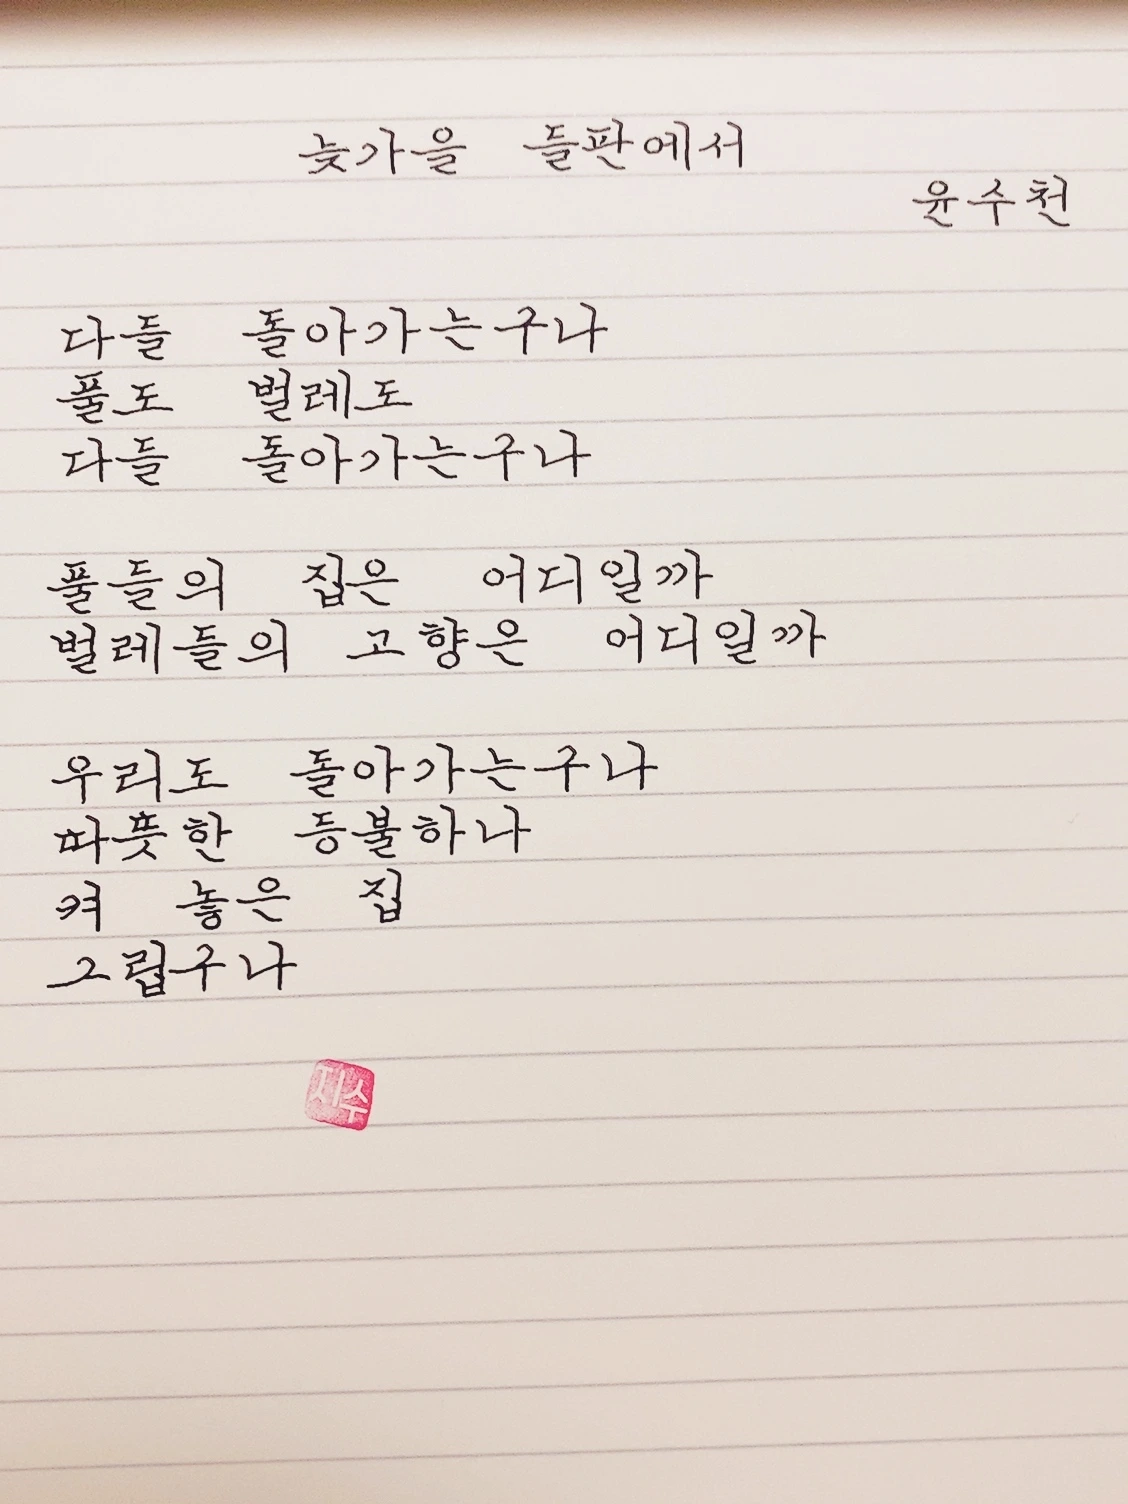 늦가을 들판에서
윤수천
다들 돌아가는구나
풀도 벌레도
다들 돌아가는구나
풀들의 집은 어디일까
벌레들의 고향은 어디일까
우리도 돌아가는구나
따뜻한 등불하나
켜 놓은 집
그립구나
지수